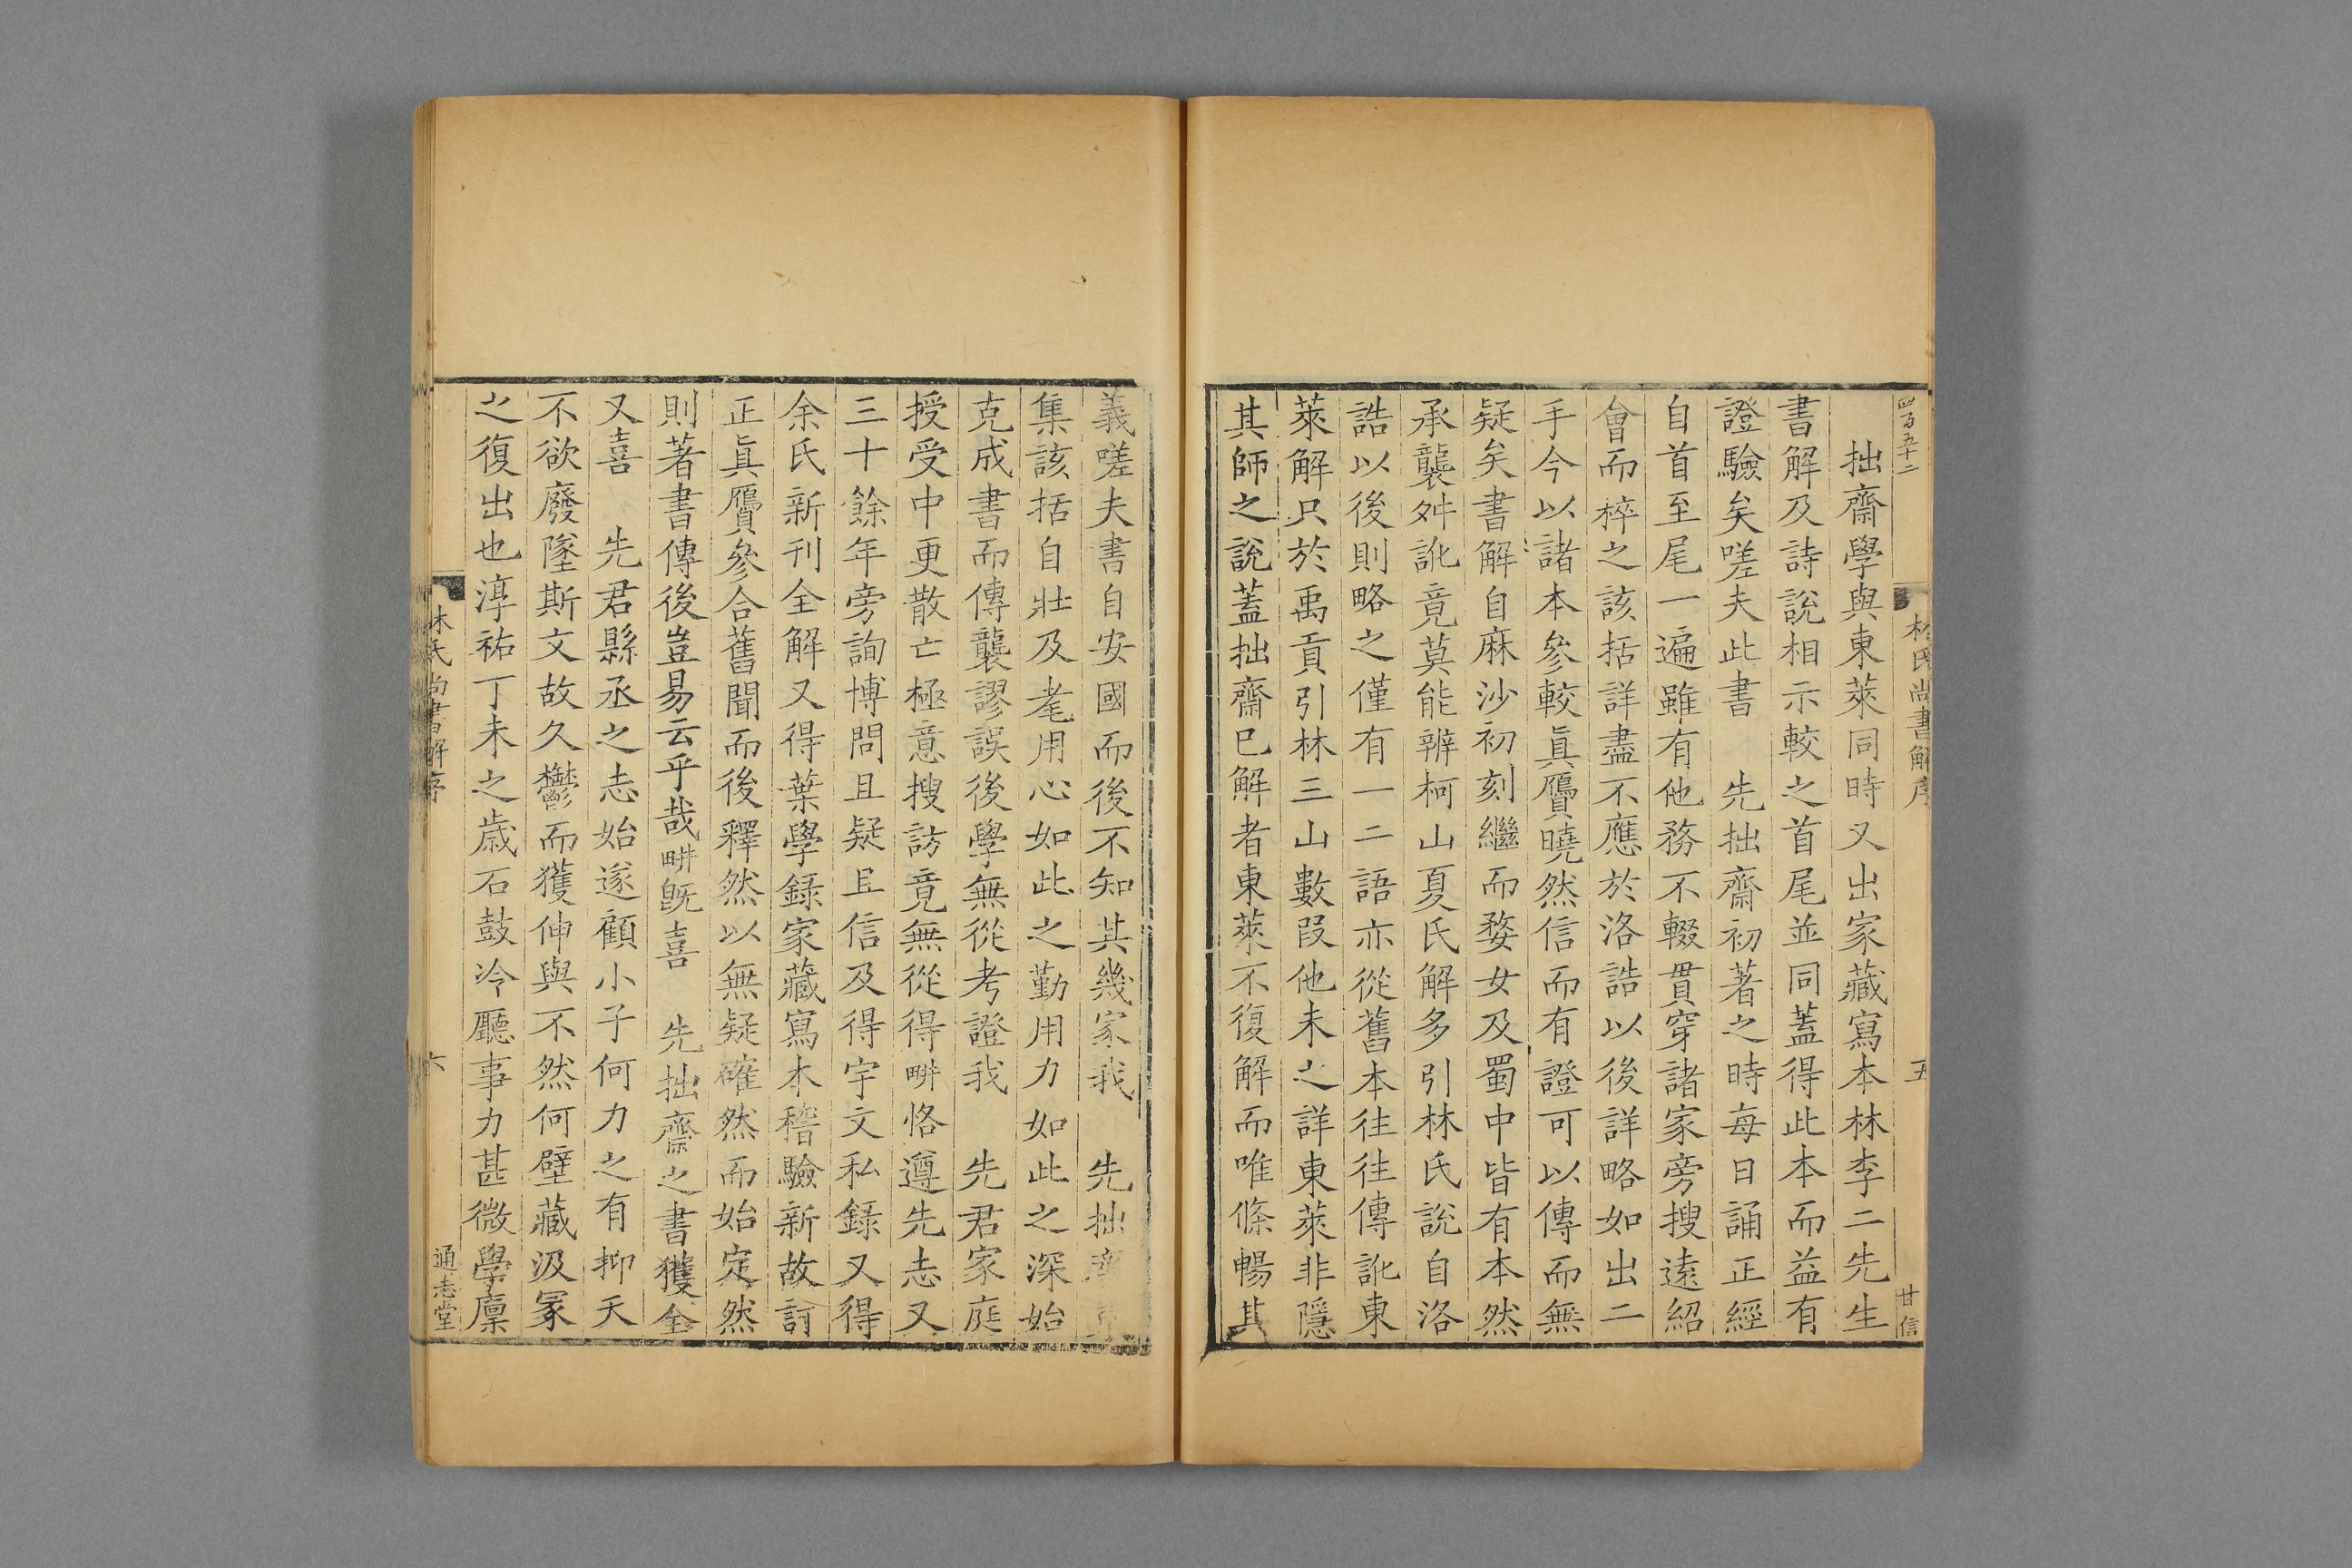 四百五十二
林氏尚書解序
五
甘信
拙齋學與東萊同時又出家藏寫本林李二先生
書解及詩說相示較之首尾並同蓋得此本而益有
證驗矣嗟夫此書 先拙齋初著之時每日誦正經
自首至尾一遍雖有他務不輟貫穿諸家旁搜遠紹
會而稡之該括詳盡不應於洛誥以後詳略如出二
手今以諸本參較真贗曉然信而有證可以傳而無
疑矣書解自麻沙初刻繼而婺女及蜀中皆有本然
承襲舛訛竟莫能辨柯山夏氏解多引林氏說自洛
誥以後則略之僅有一二語亦從舊本往往傳訛東
萊解只於禹貢引林三山數段他未之詳東萊非隱
其師之說蓋拙齋已解者東萊不復解而唯條暢其
義嗟夫書自安國而後不知其幾家我 先拙齋
集該括自壯及耄用心如此之勤用力如此之深始
克成書而傳襲謬誤後學無從考證我 先君家庭
授受中更散亡極意搜訪竟無從得畊恪遵先志又
三十餘年旁詢博問且疑且信及得宇文私録又得
余氏新刊全解又得葉學録家藏寫本稽驗新故訂
正真贗參合舊聞而後釋然以無疑確然而始定然
則著書傳後豈易云乎哉畊既喜 先拙齋之書獲全
又喜 先君縣丞之志始遂顧小子何力之有抑天
不欲廢墜斯文故久鬱而獲伸與不然何壁藏汲冢
之復出也淳祐丁未之歲石鼓冷廳事力甚微學廩
林氏尚書解序
六
通志堂